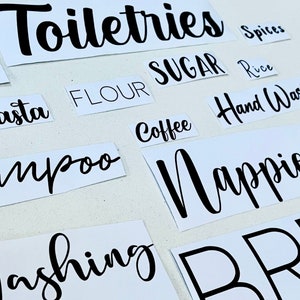 Toiletries
Spices
SUGAR
Rice
FLOUR
asta
Hand Was
Coffee
mpoo
Nappie
ashing
BR